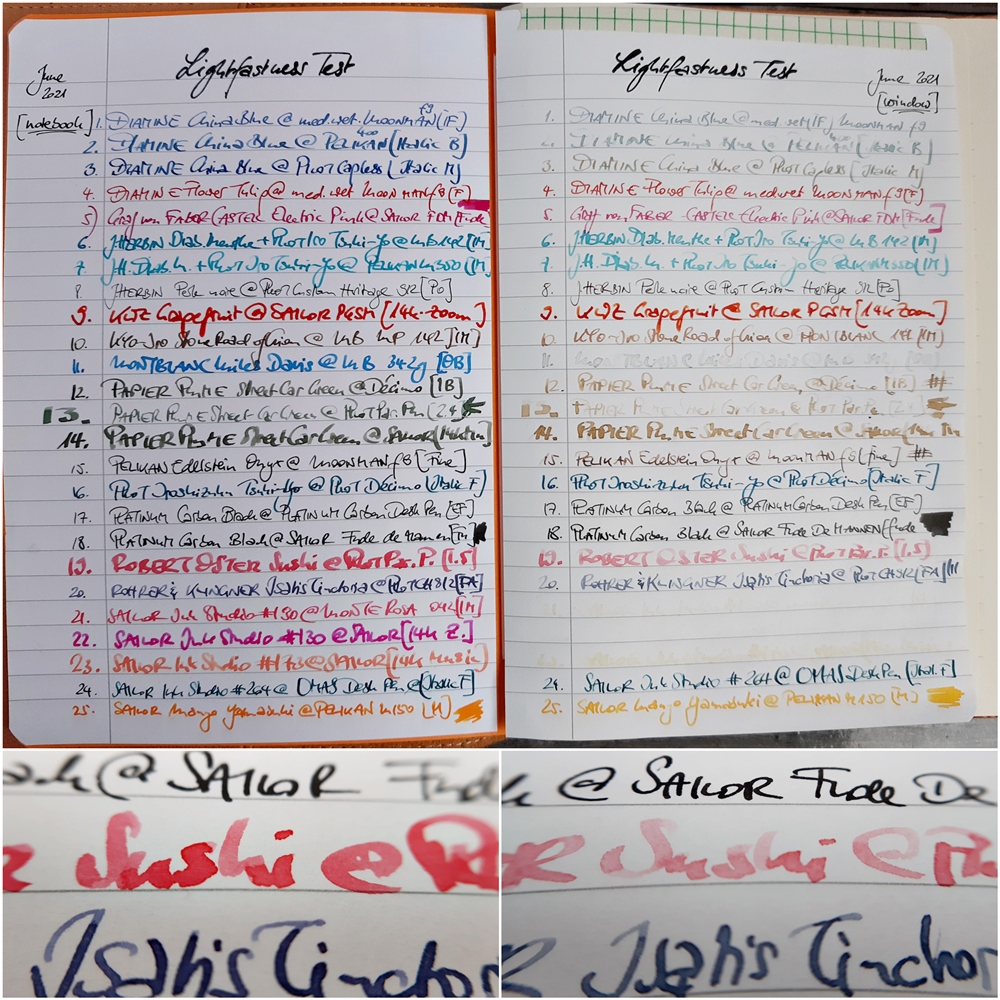 Lightfastness Test
June 2021
[notebook]
1. DIAMINE China Blue @ med. wet. MOONMAN f9 (IF)
2. DIAMINE China Blue @ PELIKAN 400 (Italic B)
3. DIAMINE China Blue @ PILOT Capless (Italic M)
4. DIAMINE Flower Tulip @ med. wet MOONMAN f9 (F)
5) Graf von FABER CASTELL Electric Pink @ SAILOR FDM [Fude
6. JHERBIN Diab. Menthe + PILOT Iro Tsuki-Yo @ MB 142 [M]
7. J.H. Diab. M. + PILOT Iro Tsuki-Yo @ PELIKAN M [M]
8. JHERBIN Perle noire @ PILOT Custom Heritage 912 [Po]
9. KWZ Grapefruit @ SAILOR PGSM [14k-Zoom]
10. KYO-Iro Stone Road of Gion @ MB MP 142 [M]
11. MONTBLANC Miles Davis @ MB 342g [OB]
12. PAPIER PLUME Street Car Green @ Décimo [1B]
13. PAPIER PLUME Street Car Green @ PILOT Par. Pen [2.4]
14. PAPIER PLUME Street Car Green @ SAILOR
15. PELIKAN Edelstein Onyx @ MOONMAN f8 [Fine]
16. PILOT Iroshizuku Tsuki-Yo @ PILOT Décimo [Italic F]
17. PLATINUM Carbon Black @ PLATINUM Carbon Desk Pen [EF]
18. PLATINUM Carbon Black @ SAILOR Fude de Mannen
19. ROBERT OSTER Sushi @ PILOT P. P. [1.5]
20. ROHRER & KLINGNER Isatis Tinctoria @ PILOT CH912 [FA]
21. SAILOR Ink Studio #130 @ MONTE ROSA 042 [M]
22. SAILOR Ink Studio #130 @ SAILOR [14k Z.]
23. SAILOR Ink Studio #173 @ SAILOR [14k Music]
24. SAILOR Ink Studio #264 @ OMAS Desk Pen @ [Italic F]
25. SAILOR Kingyo Yamabuki @ PELIKAN M150 [M]
Lightfastness Test
June 2021
[window]
1. DIAMINE China Blue @ med. wet (IF) MOONMAN f9
2. DIAMINE China Blue @ PELIKAN 400 (Italic B
3. DIAMINE China Blue @ PILOT Capless [Italic M]
4. DIAMINE Flower Tulip @ med wet MOONMAN f9 [F]
5. Graf von FABER-CASTELL Electric Pink @ SAILOR FDM [Fude]
6. JHERBIN Diab. Menthe + PILOT Iro Tsuki-Yo @ MB 142 [M]
7. J.H. Diab. M. + PILOT Iro Tsuki-Yo @ PELIKAN M [M]
8. JHERBIN Perle noire @ PILOT Custom Heritage 912 [Po]
9. KWZ Grapefruit @ SAILOR PGSM [14k-Zoom]
10. KYO-Iro Stone Road of Gion @ MONTBLANC 142 [M]
11. MONTBLANC Miles Davis @
12. PAPIER PLUME Street Car Green @ Décimo [1B] #
13. PAPIER PLUME Street Car Green @ PILOT Par. Pe
14. PAPIER PLUME Street Car Green @ SAILOR
15. PELIKAN Edelstein Onyx @ MOONMAN f8 [fine] #
16. PILOT Iroshizuku Tsuki-Yo @ PILOT Décimo [Italic F]
17. PLATINUM Carbon Black @ PLATINUM Carbon Desk Pen [EF]
18. PLATINUM Carbon Black @ SAILOR Fude De MANNEN [fude
19. ROBERT OSTER Sushi @ PILOT Par. P. [1.5]
20. ROHRER & KLINGNER Isatis Tinctoria @ PILOT CH912 [FA]
24. SAILOR Ink Studio #264 @ OMAS Desk Pen [Ital. F]
25. SAILOR Kingyo Yamabuki @ PELIKAN M150 [M]
@ SAILOR Fude
Sushi @
Isatis Tinctor
@ SAILOR Fude De
R Sushi @
Isatis Tinctor